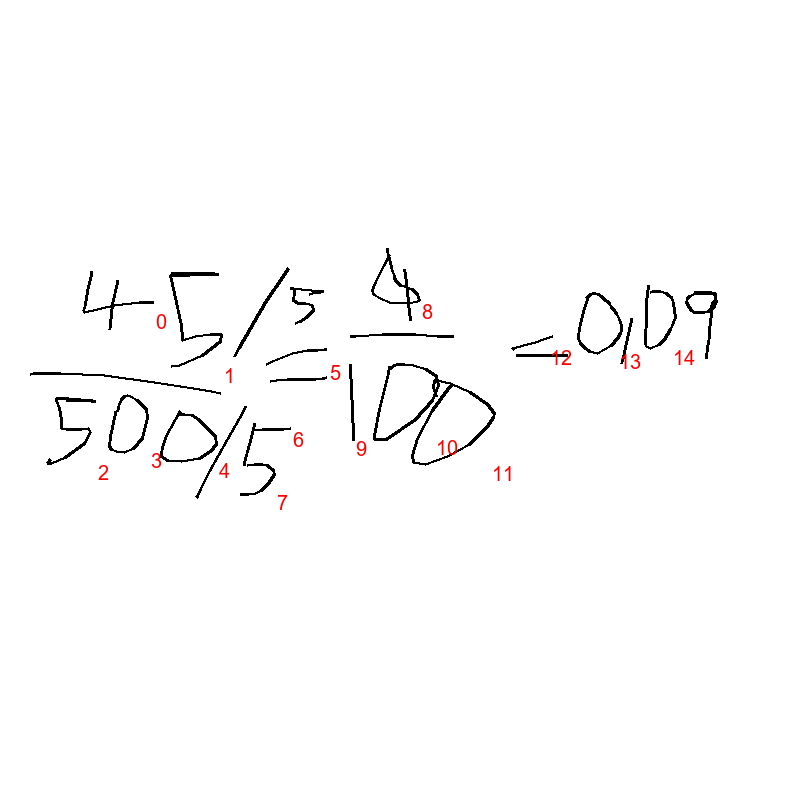 45/5 4
500/5 = 100 = 0,09
0 1 2 3 4 5 6 7 8 9 10 11 12 13 14